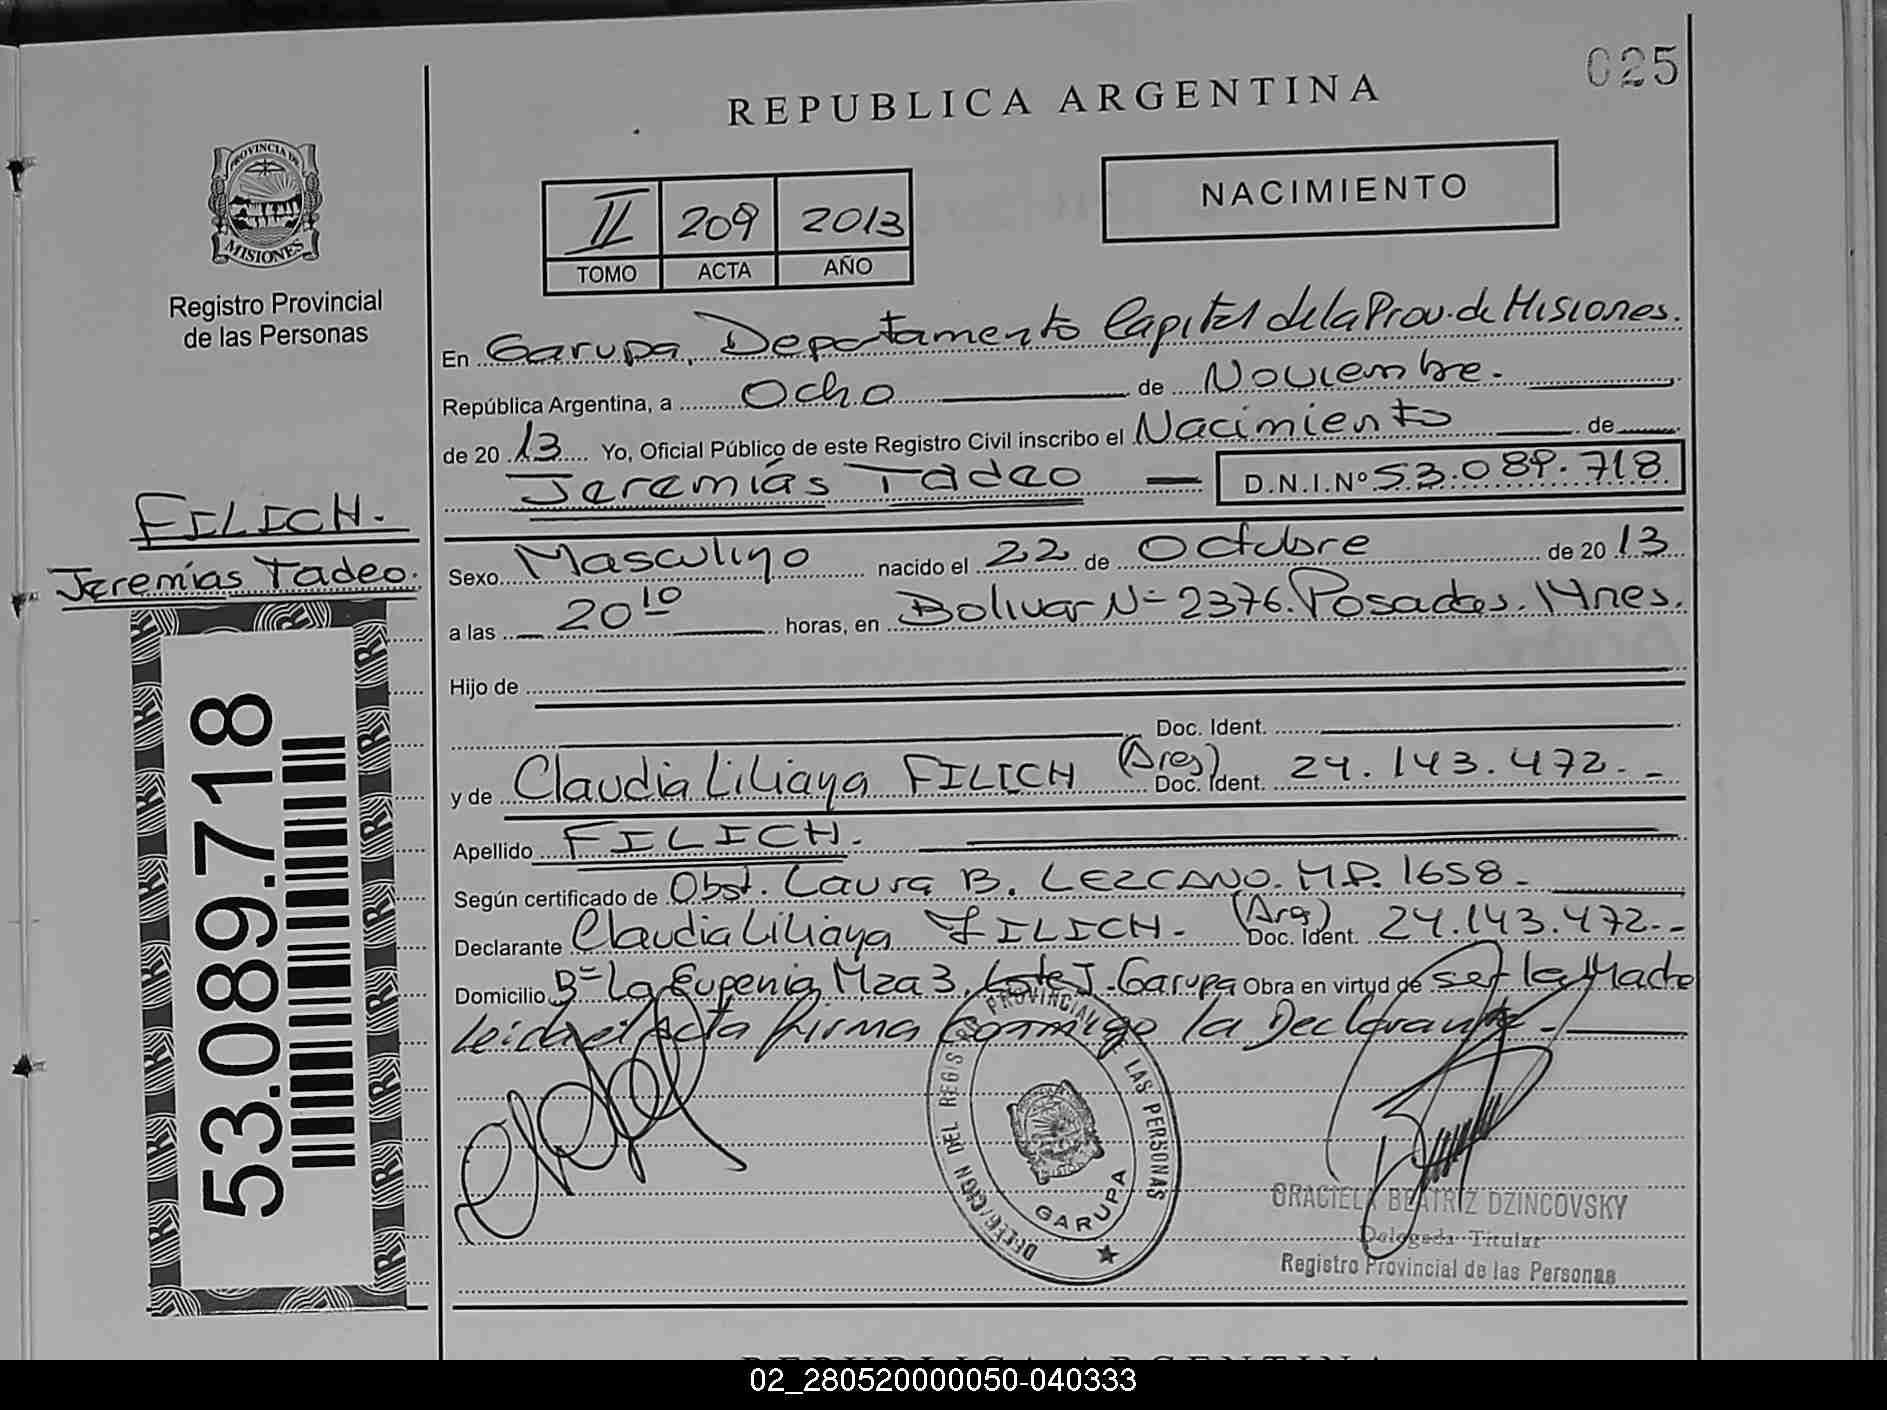 025
REPUBLICA ARGENTINA
PROVINCIA DE
MISIONES
Registro Provincial
de las Personas
NACIMIENTO
II 209 2013
TOMO ACTA AÑO
En Garupa, Departamento Capital de la Prov. de Misiones.
República Argentina, a Ocho de Noviembre.
de 20 13 Yo, Oficial Público de este Registro Civil inscribo el Nacimiento de
Jeremías Tadeo D.N.I.Nº 53.089.718
FILICH.
Jeremías Tadeo.
Sexo Masculino nacido el 22 de Octubre de 20 13
a las 20 10 horas, en Bolivar Nº 2376. Posadas. Mnes.
Hijo de
Doc. Ident.
y de Claudia Liliana FILICH (Arg) Doc. Ident. 24.143.472.-
Apellido FILICH.
Según certificado de Obst. Laura B. LEZCANO. M.P. 1658-
Declarante Claudia Liliana FILICH.- (Arg) Doc. Ident. 24.143.472.-
Domicilio Bº La Eugenia Mza 3, Lote J. Garupa Obra en virtud de ser la Madre
Leída el Acta firma conmigo la Declarante.-
53.089.718
DELEGACION DEL REGISTRO PROVINCIAL DE LAS PERSONAS
GARUPA
GRACIELA BEATRIZ DZINCOVSKY
Delegada Titular
Registro Provincial de las Personas
REPUBLICA ARGENTINA
02_280520000050-040333